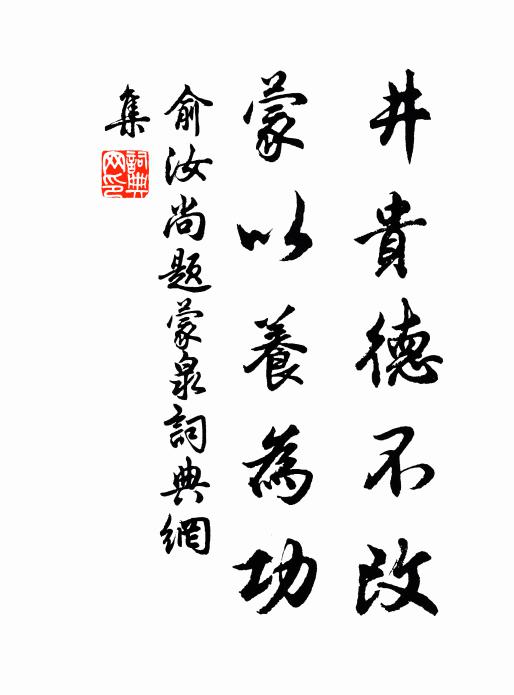 井貴德不改
蒙以養為功
俞汝尚題蒙泉詞典網
集
詞典
网印